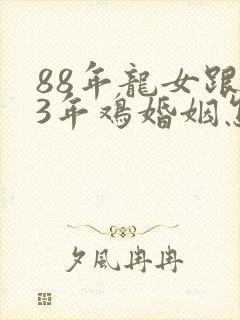 88年龍女跟
3年鳮婚姻
夕風冉冉